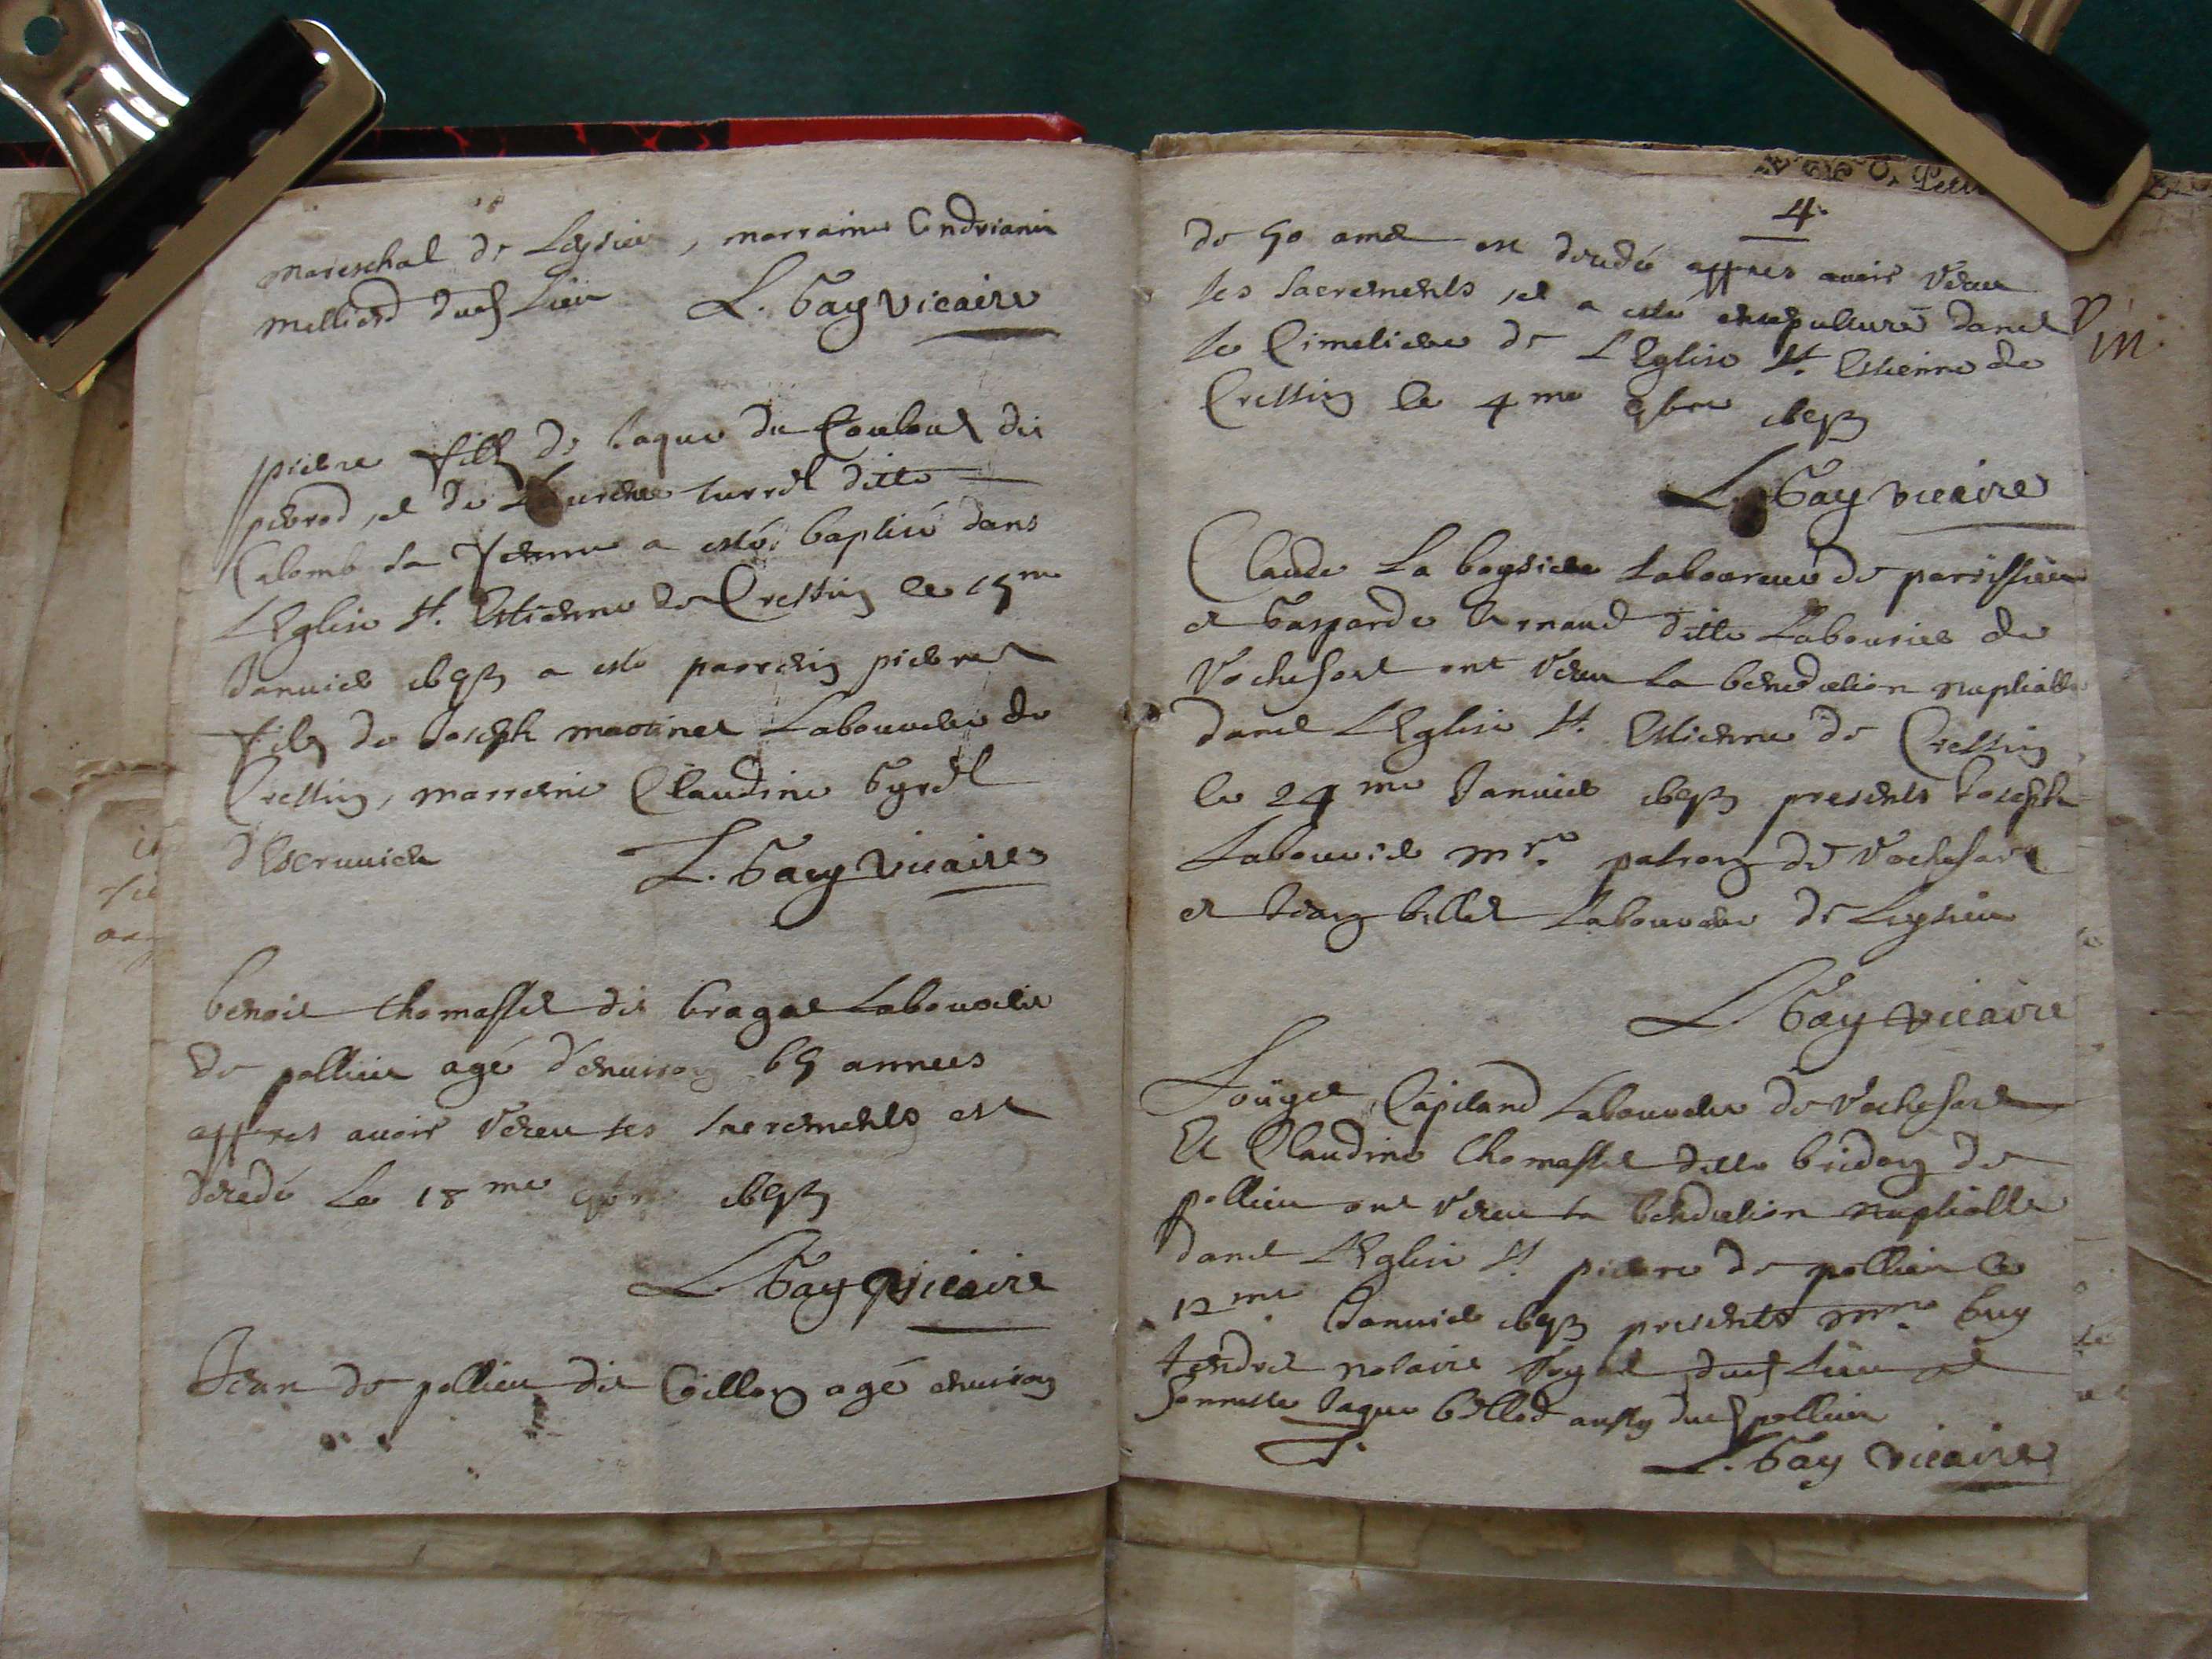 mareschal de Leysieu, marraine Andrianne
milliend dud lieu L. Gay vicaire
pierre fillz de Jaque du Coulouz dit
pierrod, et de Laurence turrel ditte
Calomb sa femme a esté baptisé dans
LEglise St. Estienne de Cressin le 15me
Janvier a esté parrein pierre
filz de Joseph martinet Laboureur de
Cressin, marreine Claudine Gyrel
L. Gay vicaire
benoit thomasset dit bragat Laboureur
de pollieu agé d'environ 65 annees
appres avoir receu ses sacrements est
decedé Le 18me
L Gay vicaire
Jean de pollieu dit Coillon agé environ
4.
de 50 ans est decedé appres avoir receu
ses sacrements, et a esté ensepulturé dans
le Cimetiere de LEglise St. Estienne de
Cressin le 4me 9bre
L. Gay vicaire
Claude La boysiere Laboureur de parrissieu
et Gasparde Arnaud ditte Labourier de
Rochefort ont receu La benediction nuptialle
dans LEglise St. Estienne de Cressin
le 24me Janvier presents Joseph
Labourier mre. patron de Rochefort
et Jean billet Laboureur de Leysieu
L Gay vicaire
Capeland Laboureur de Rochefort
Et Claudine thomasset ditte bridon de
pollieu ont receu La benediction nuptialle
dans LEglise St pierre de pollieu le
12me. Janvier presents mre. Guy
tendret notaire Royal dud lieu et
honneste Jaque billod aussy dud pollieu
L. Gay vicaire